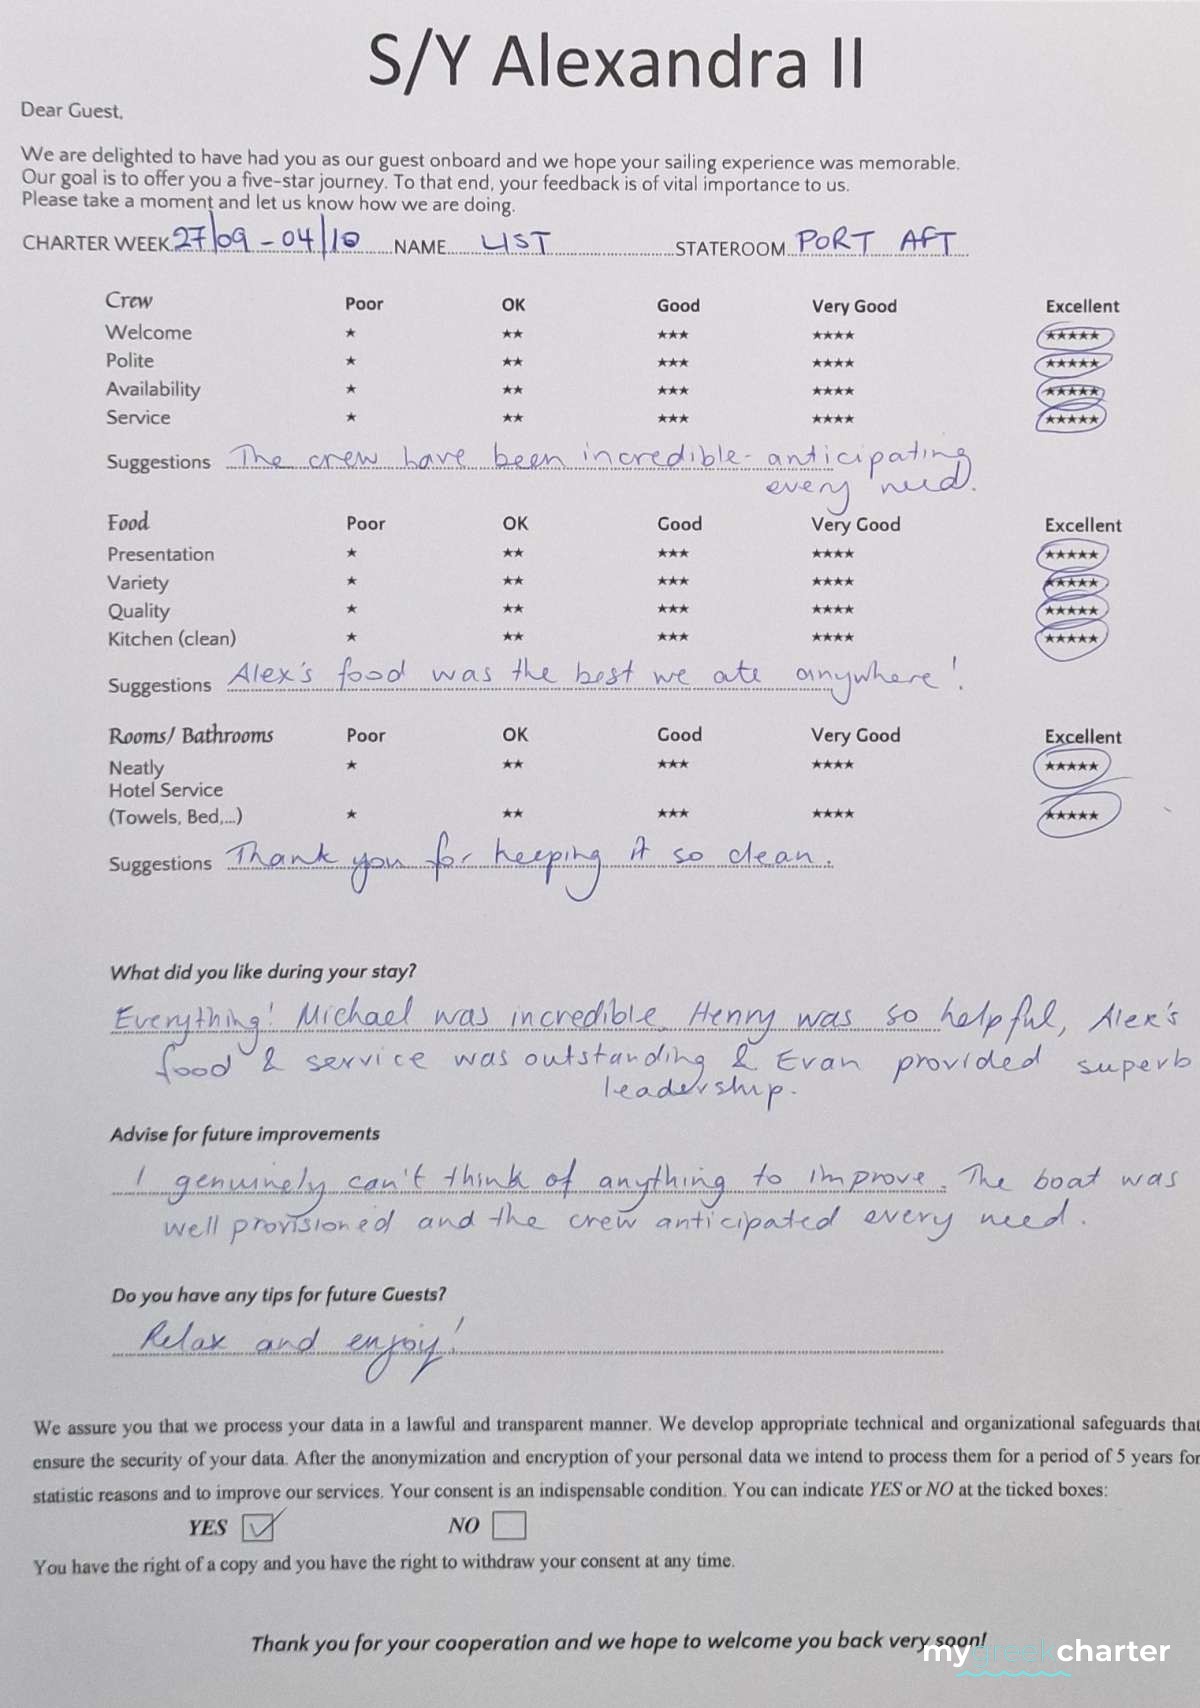 S/Y Alexandra II
Dear Guest,
We are delighted to have had you as our guest onboard and we hope your sailing experience was memorable.
Our goal is to offer you a five-star journey. To that end, your feedback is of vital importance to us.
Please take a moment and let us know how we are doing.
CHARTER WEEK 27/09 - 04/10 NAME LIST STATEROOM PORT AFT
Crew Poor OK Good Very Good Excellent
Welcome ★ ★★ ★★★ ★★★★ ★★★★★
Polite ★ ★★ ★★★ ★★★★ ★★★★★
Availability ★ ★★ ★★★ ★★★★ ★★★★★
Service ★ ★★ ★★★ ★★★★ ★★★★★
Suggestions The crew have been incredible - anticipating
every need.
Food Poor OK Good Very Good Excellent
Presentation ★ ★★ ★★★ ★★★★ ★★★★★
Variety ★ ★★ ★★★ ★★★★ ★★★★★
Quality ★ ★★ ★★★ ★★★★ ★★★★★
Kitchen (clean) ★ ★★ ★★★ ★★★★ ★★★★★
Suggestions Alex's food was the best we ate anywhere!
Rooms/ Bathrooms Poor OK Good Very Good Excellent
Neatly ★ ★★ ★★★ ★★★★ ★★★★★
Hotel Service
(Towels, Bed,...) ★ ★★ ★★★ ★★★★ ★★★★★
Suggestions Thank you for keeping it so clean.
What did you like during your stay?
Everything! Michael was incredible. Henry was so helpful, Alex's
food & service was outstanding & Evan provided superb
leadership.
Advise for future improvements
I genuinely can't think of anything to improve. The boat was
well provisioned and the crew anticipated every need.
Do you have any tips for future Guests?
Relax and enjoy!
We assure you that we process your data in a lawful and transparent manner. We develop appropriate technical and organizational safeguards that
ensure the security of your data. After the anonymization and encryption of your personal data we intend to process them for a period of 5 years for
statistic reasons and to improve our services. Your consent is an indispensable condition. You can indicate YES or NO at the ticked boxes:
YES ☑ NO ☐
You have the right of a copy and you have the right to withdraw your consent at any time.
Thank you for your cooperation and we hope to welcome you back very soon!
mygreekcharter